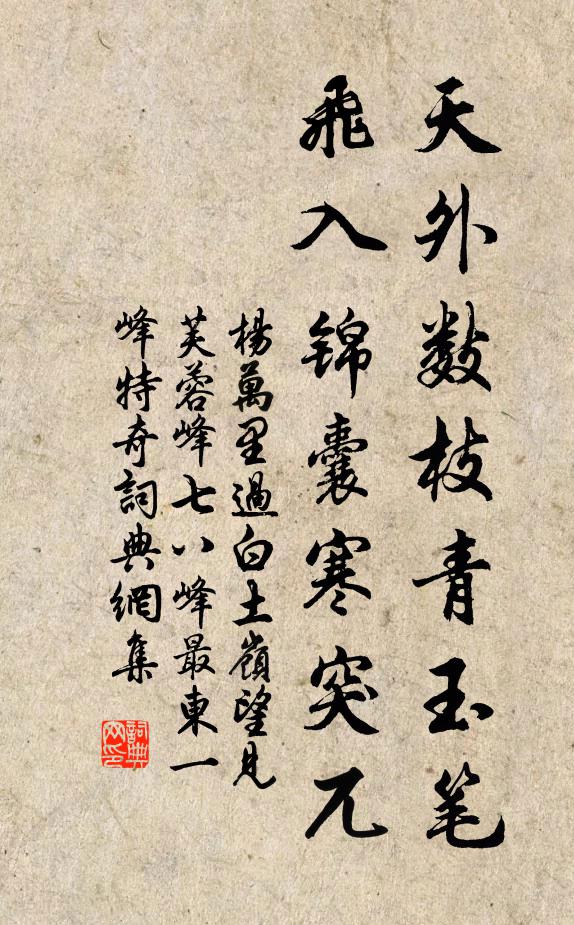 天外数枝青玉笔
飛入锦囊寒突兀
楊萬里過白土嶺望見
芙蓉峰七八峰最東一
峰特奇詞典網集
詞典
网印